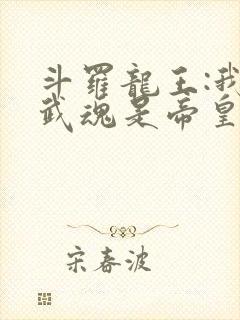 斗羅龍王:我
武魂是帝皇
宋春波